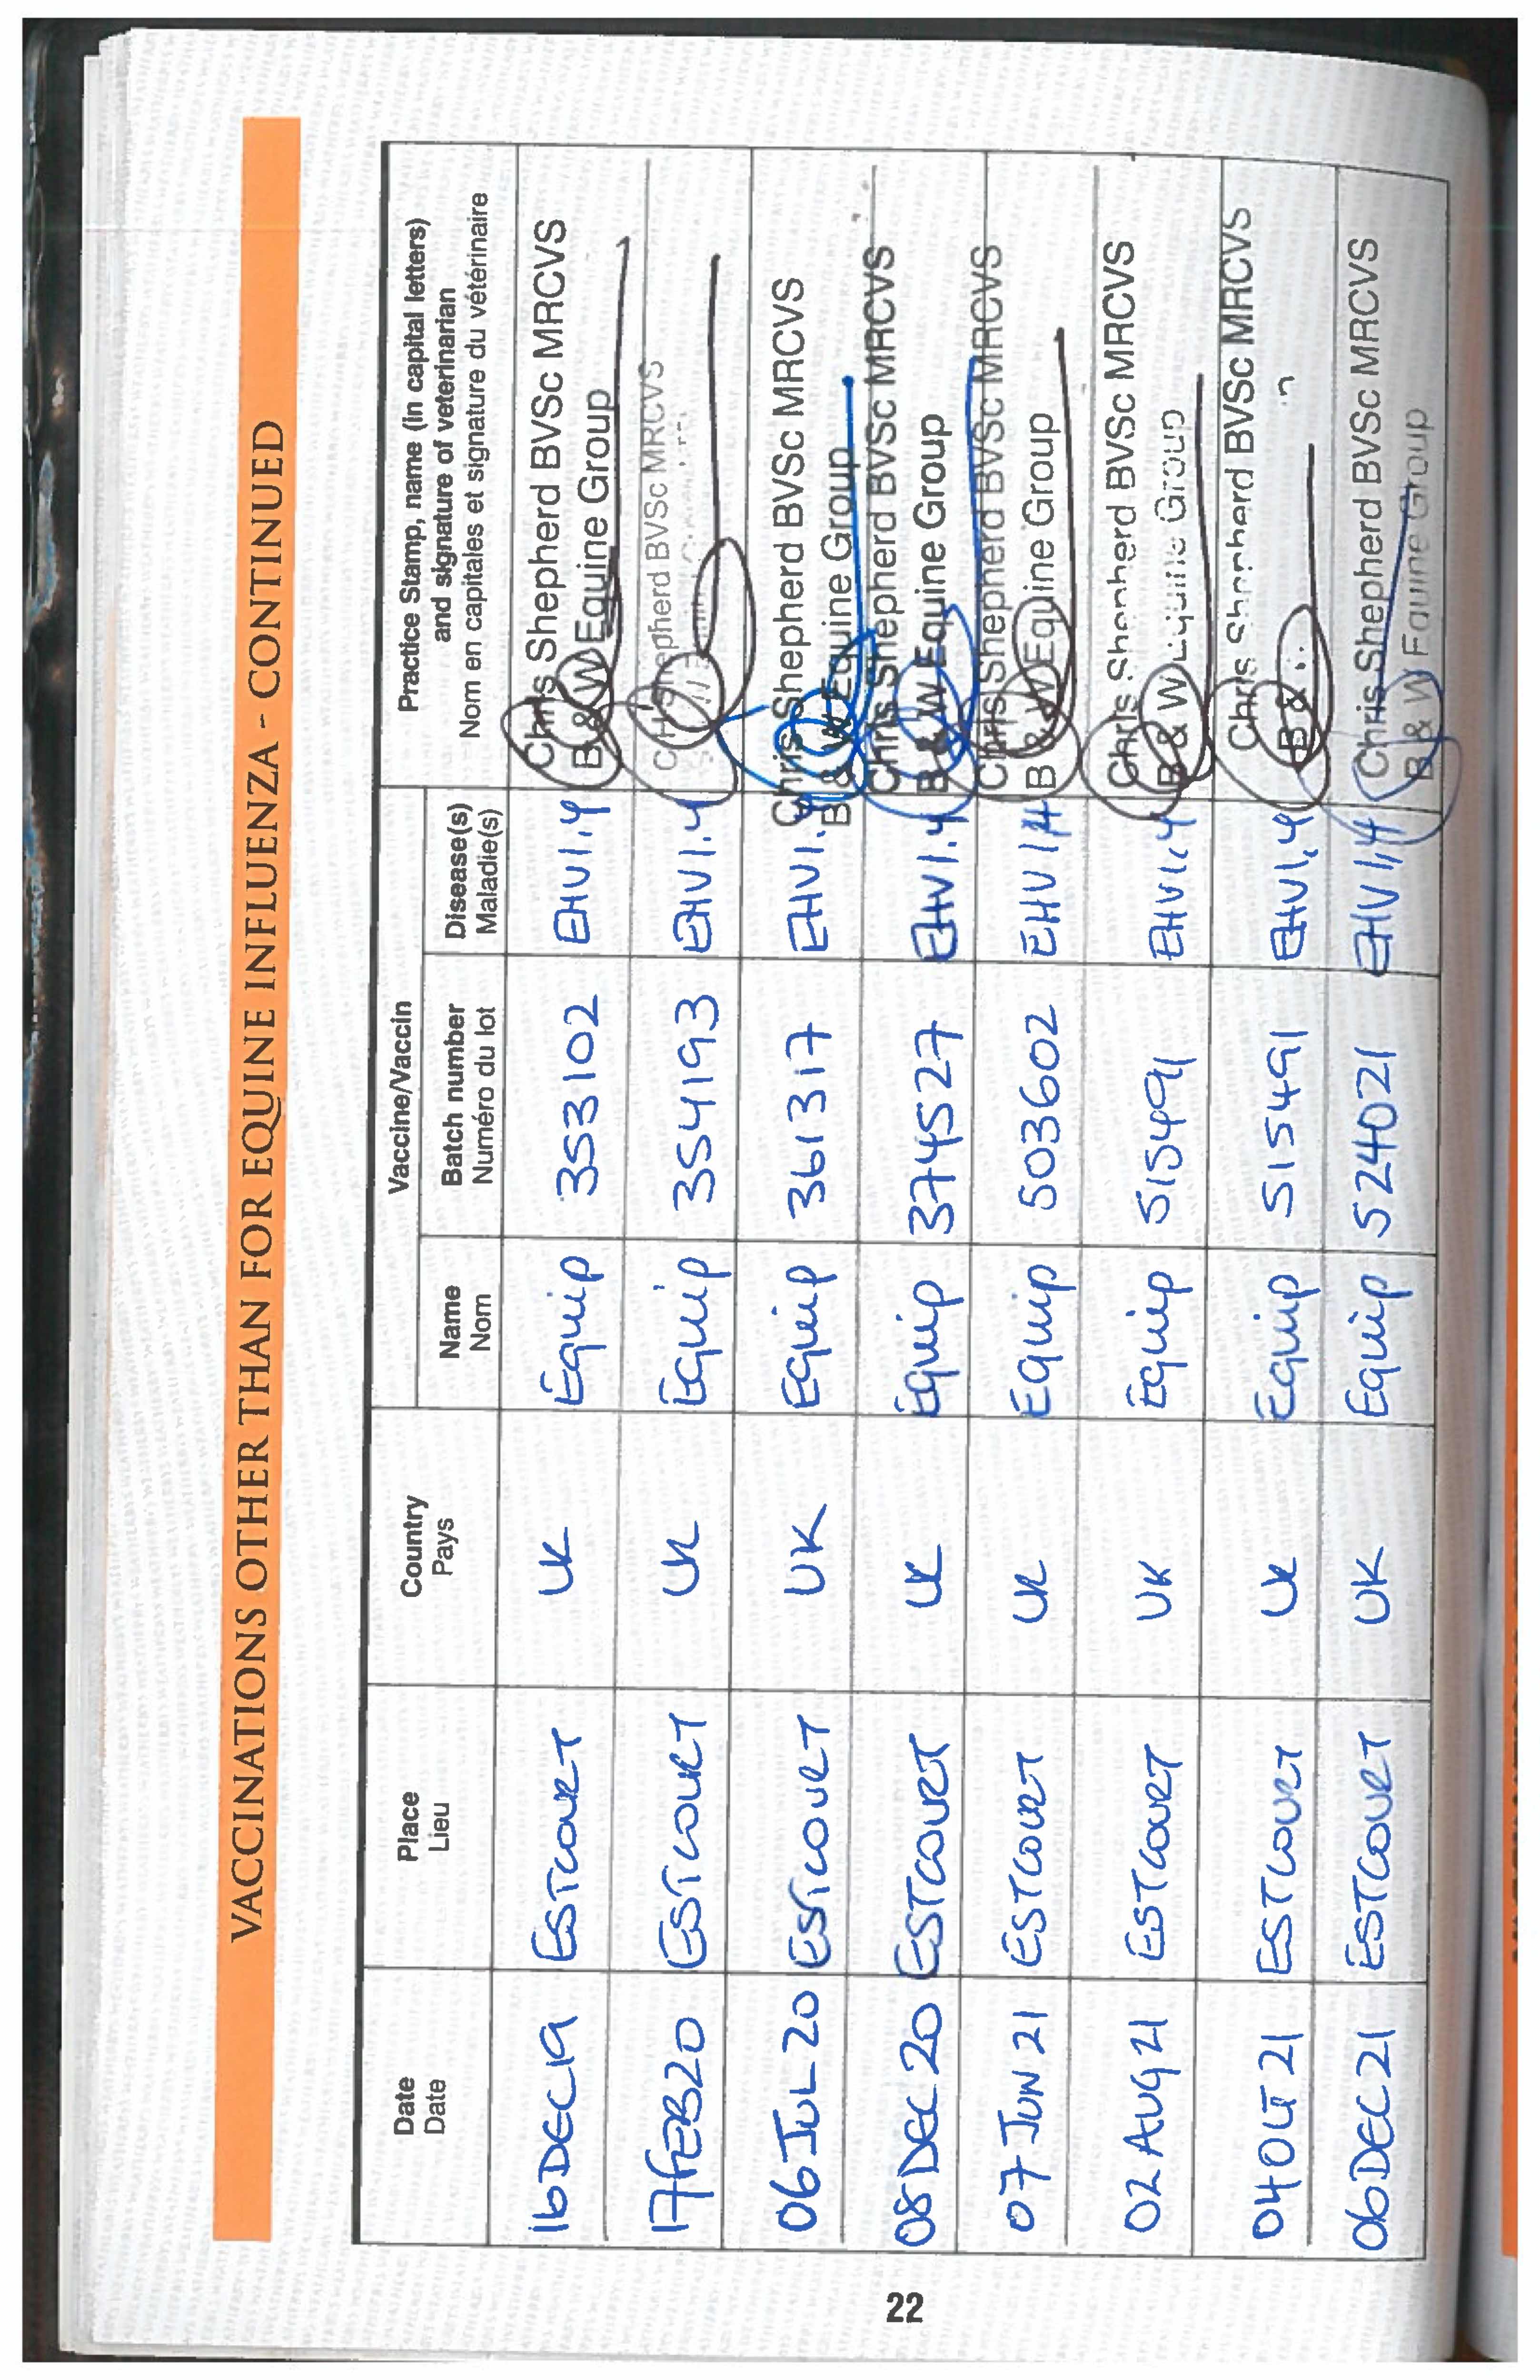 VACCINATIONS OTHER THAN FOR EQUINE INFLUENZA - CONTINUED
Date
Date
Place
Lieu
Country
Pays
Vaccine/Vaccin
Name
Nom
Batch number
Numéro du lot
Disease(s)
Maladie(s)
Practice Stamp, name (in capital letters)
and signature of veterinarian
Nom en capitales et signature du vétérinaire
16DEC19 ESTCOURT UK Equip 353102 EHV1.4 Chris Shepherd BVSc MRCVS
B & W Equine Group
17FEB20 ESTCOURT UK Equip 354193 EHV1.4 Shepherd BVSc MRCVS
06JUL20 ESTCOURT UK Equip 361317 EHV1.4 Chris Shepherd BVSc MRCVS
B & W Equine Group
08DEC20 ESTCOURT UK Equip 374527 EHV1.4 Chris Shepherd BVSc MRCVS
B & W Equine Group
07JUN21 ESTCOURT UK Equip 503602 EHV1,4 Chris Shepherd BVSc MRCVS
B & W Equine Group
02AUG21 ESTCOURT UK Equip 515491 EHV1,4 Chris Shepherd BVSc MRCVS
B & W Equine Group
04OCT21 ESTCOURT UK Equip 515491 EHV1,4 Chris Shepherd BVSc MRCVS
B &
06DEC21 ESTCOURT UK Equip 524021 EHV1,4 Chris Shepherd BVSc MRCVS
B & W Equine Group
22